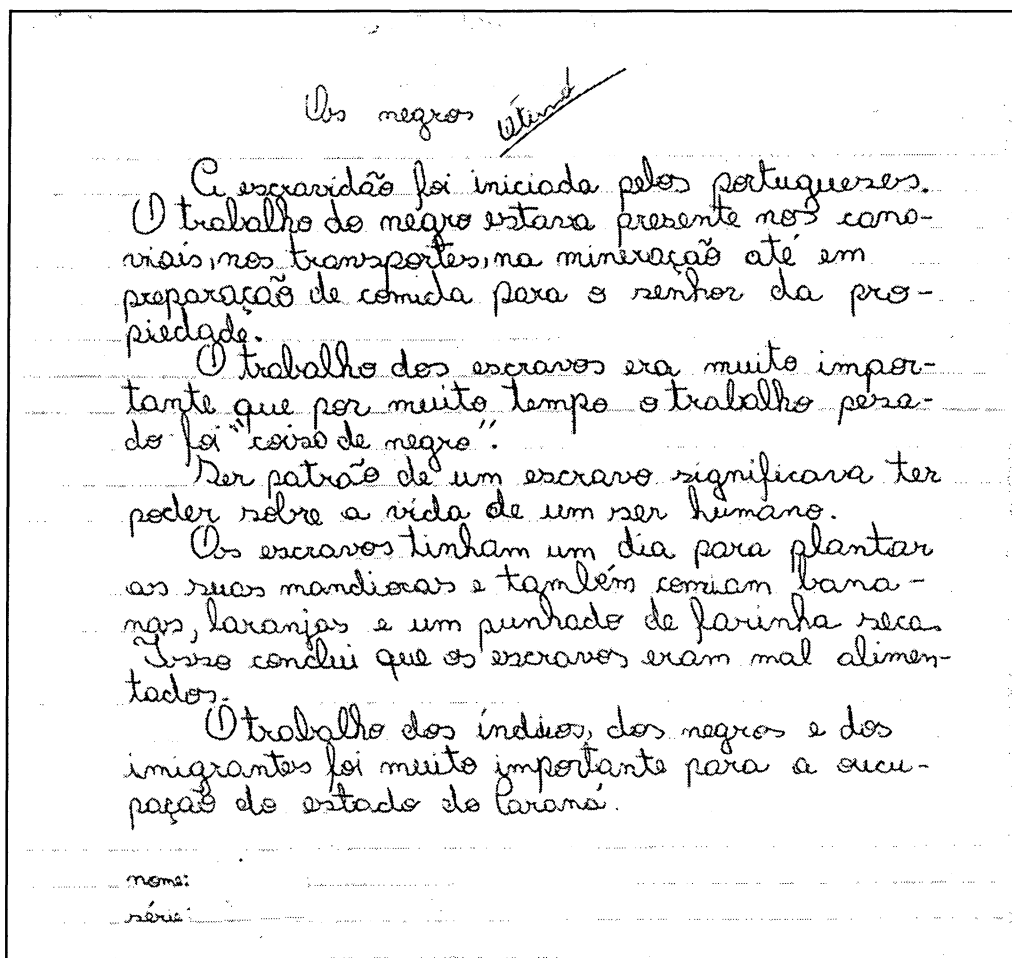 Os negros ótimo!
A escravidão foi iniciada pelos portugueses.
O trabalho do negro estava presente nos cana-
viais, nos transportes, na mineração até em
preparação de comida para o senhor da pro-
piedade.
O trabalho dos escravos era muito impor-
tante que por muito tempo o trabalho pesa-
do foi "coisa de negro".
Ser patrão de um escravo significava ter
poder sobre a vida de um ser humano.
Os escravos tinham um dia para plantar
as suas mandiocas e também comiam bana-
nas, laranjas e um punhado de farinha seca.
Isso conclui que os escravos eram mal alimen-
tados.
O trabalho dos índios, dos negros e dos
imigrantes foi muito importante para a oucu-
pação do estado do Paraná.
nome:
série: